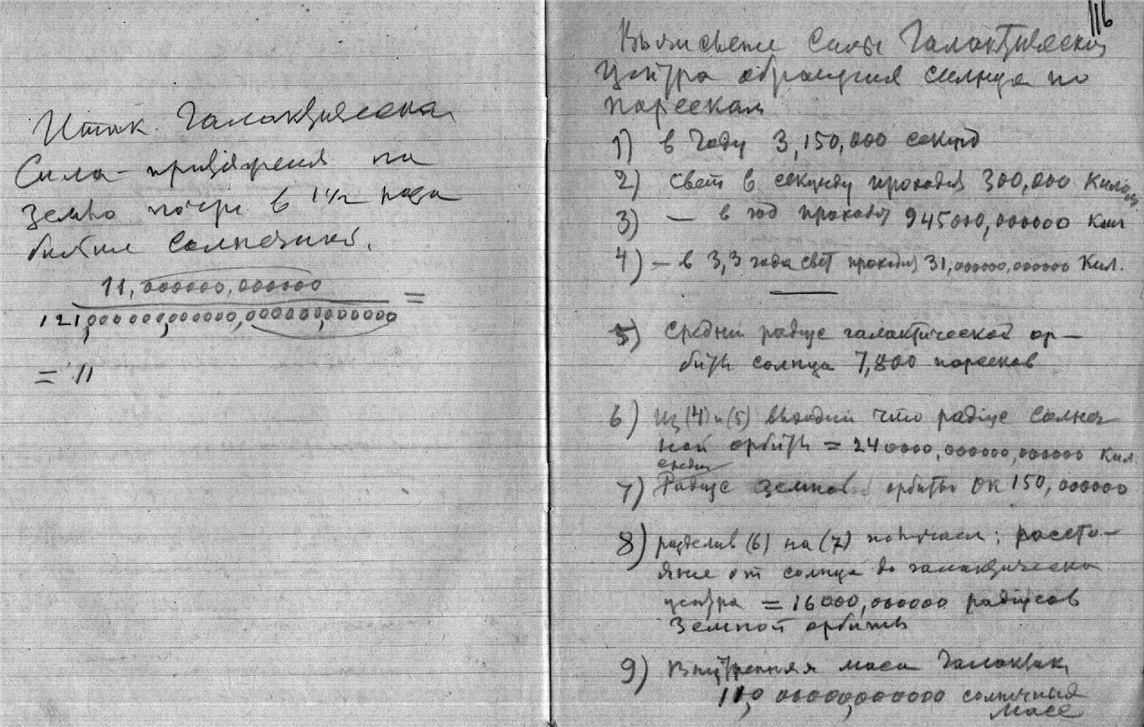 Итак Галактическа
Сила притяжения на
землю почти в 1 1/2 раза
больше солнечной.
11,000000,000000
121,000000,000000,000000,000000 =
= 11
116
Вычисление силы Галактическаго
центра обращения солнца по
парсекам
1) в Году 3,150,000 секунд
2) Свет в секунду проходит 300,000 Килом
3) — в год проходит 945000,000000 Кил
4) — в 3,3 года свет проходит 31,000000,000000 Кил.
5) Средний радиус галактической ор-
биты солнца 7,800 парсеков
6) Из (4) и (5) выходит что радиус солнеч
ной орбиты = 240000,000000,000000 Кил.
7) Радиус земной орбиты ок 150,000000
8) разделив (6) на (7) получаем: рассто-
яние от солнца до галактическа
центра = 16000,000000 радиусов
Земной орбиты
9) Внутренняя маса Галактики
110,000000,000000 солнечных
масс